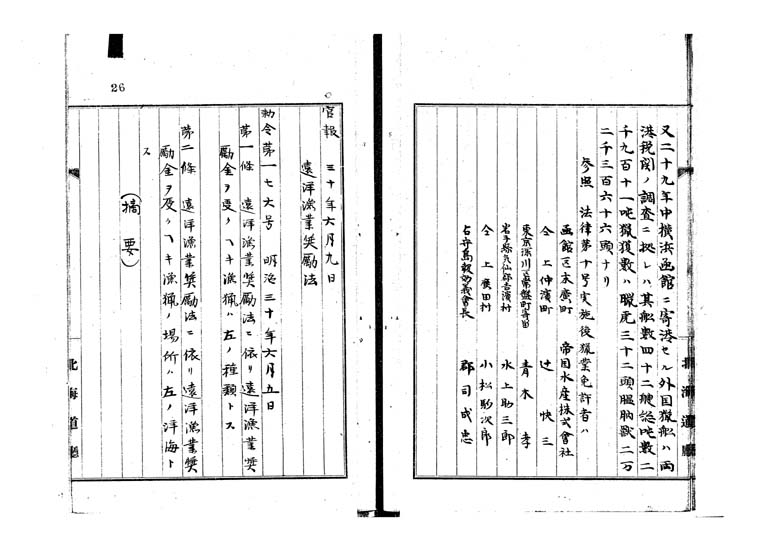 又二十九年中横浜函館ニ寄港セル外国猟舩ハ両
港税関ノ調査ニ拠レハ其舩数四十二艘総吨数二
千九百十一吨猟獲数ハ臘虎三十二頭膃肭獣二万
二千三百六十六頭ナリ
参照 法律第十号実施後猟業免許者ハ
函館区末廣町 帝国水産株式會社
仝上仲濱町 辻快三
東京深川区常盤町寄留 青木孝
岩手縣気仙郡吉濱村 水上助三郎
仝上廣田村 小松駒次郎
占守島報効義會長 郡司成忠
北海道廳
26
官報 三十年六月九日
遠洋漁業奨励法
勅令第一七六号 明治三十年六月五日
第一條 遠洋漁業奨励法ニ依リ遠洋漁業奨
励金ヲ受クヘキ漁猟ハ左ノ種類トス
第二條 遠洋漁業奨励法ニ依リ遠洋漁業奨
励金ヲ受クヘキ漁猟ノ場所ハ左ノ洋海ト
ス
(摘要)
北海道廳